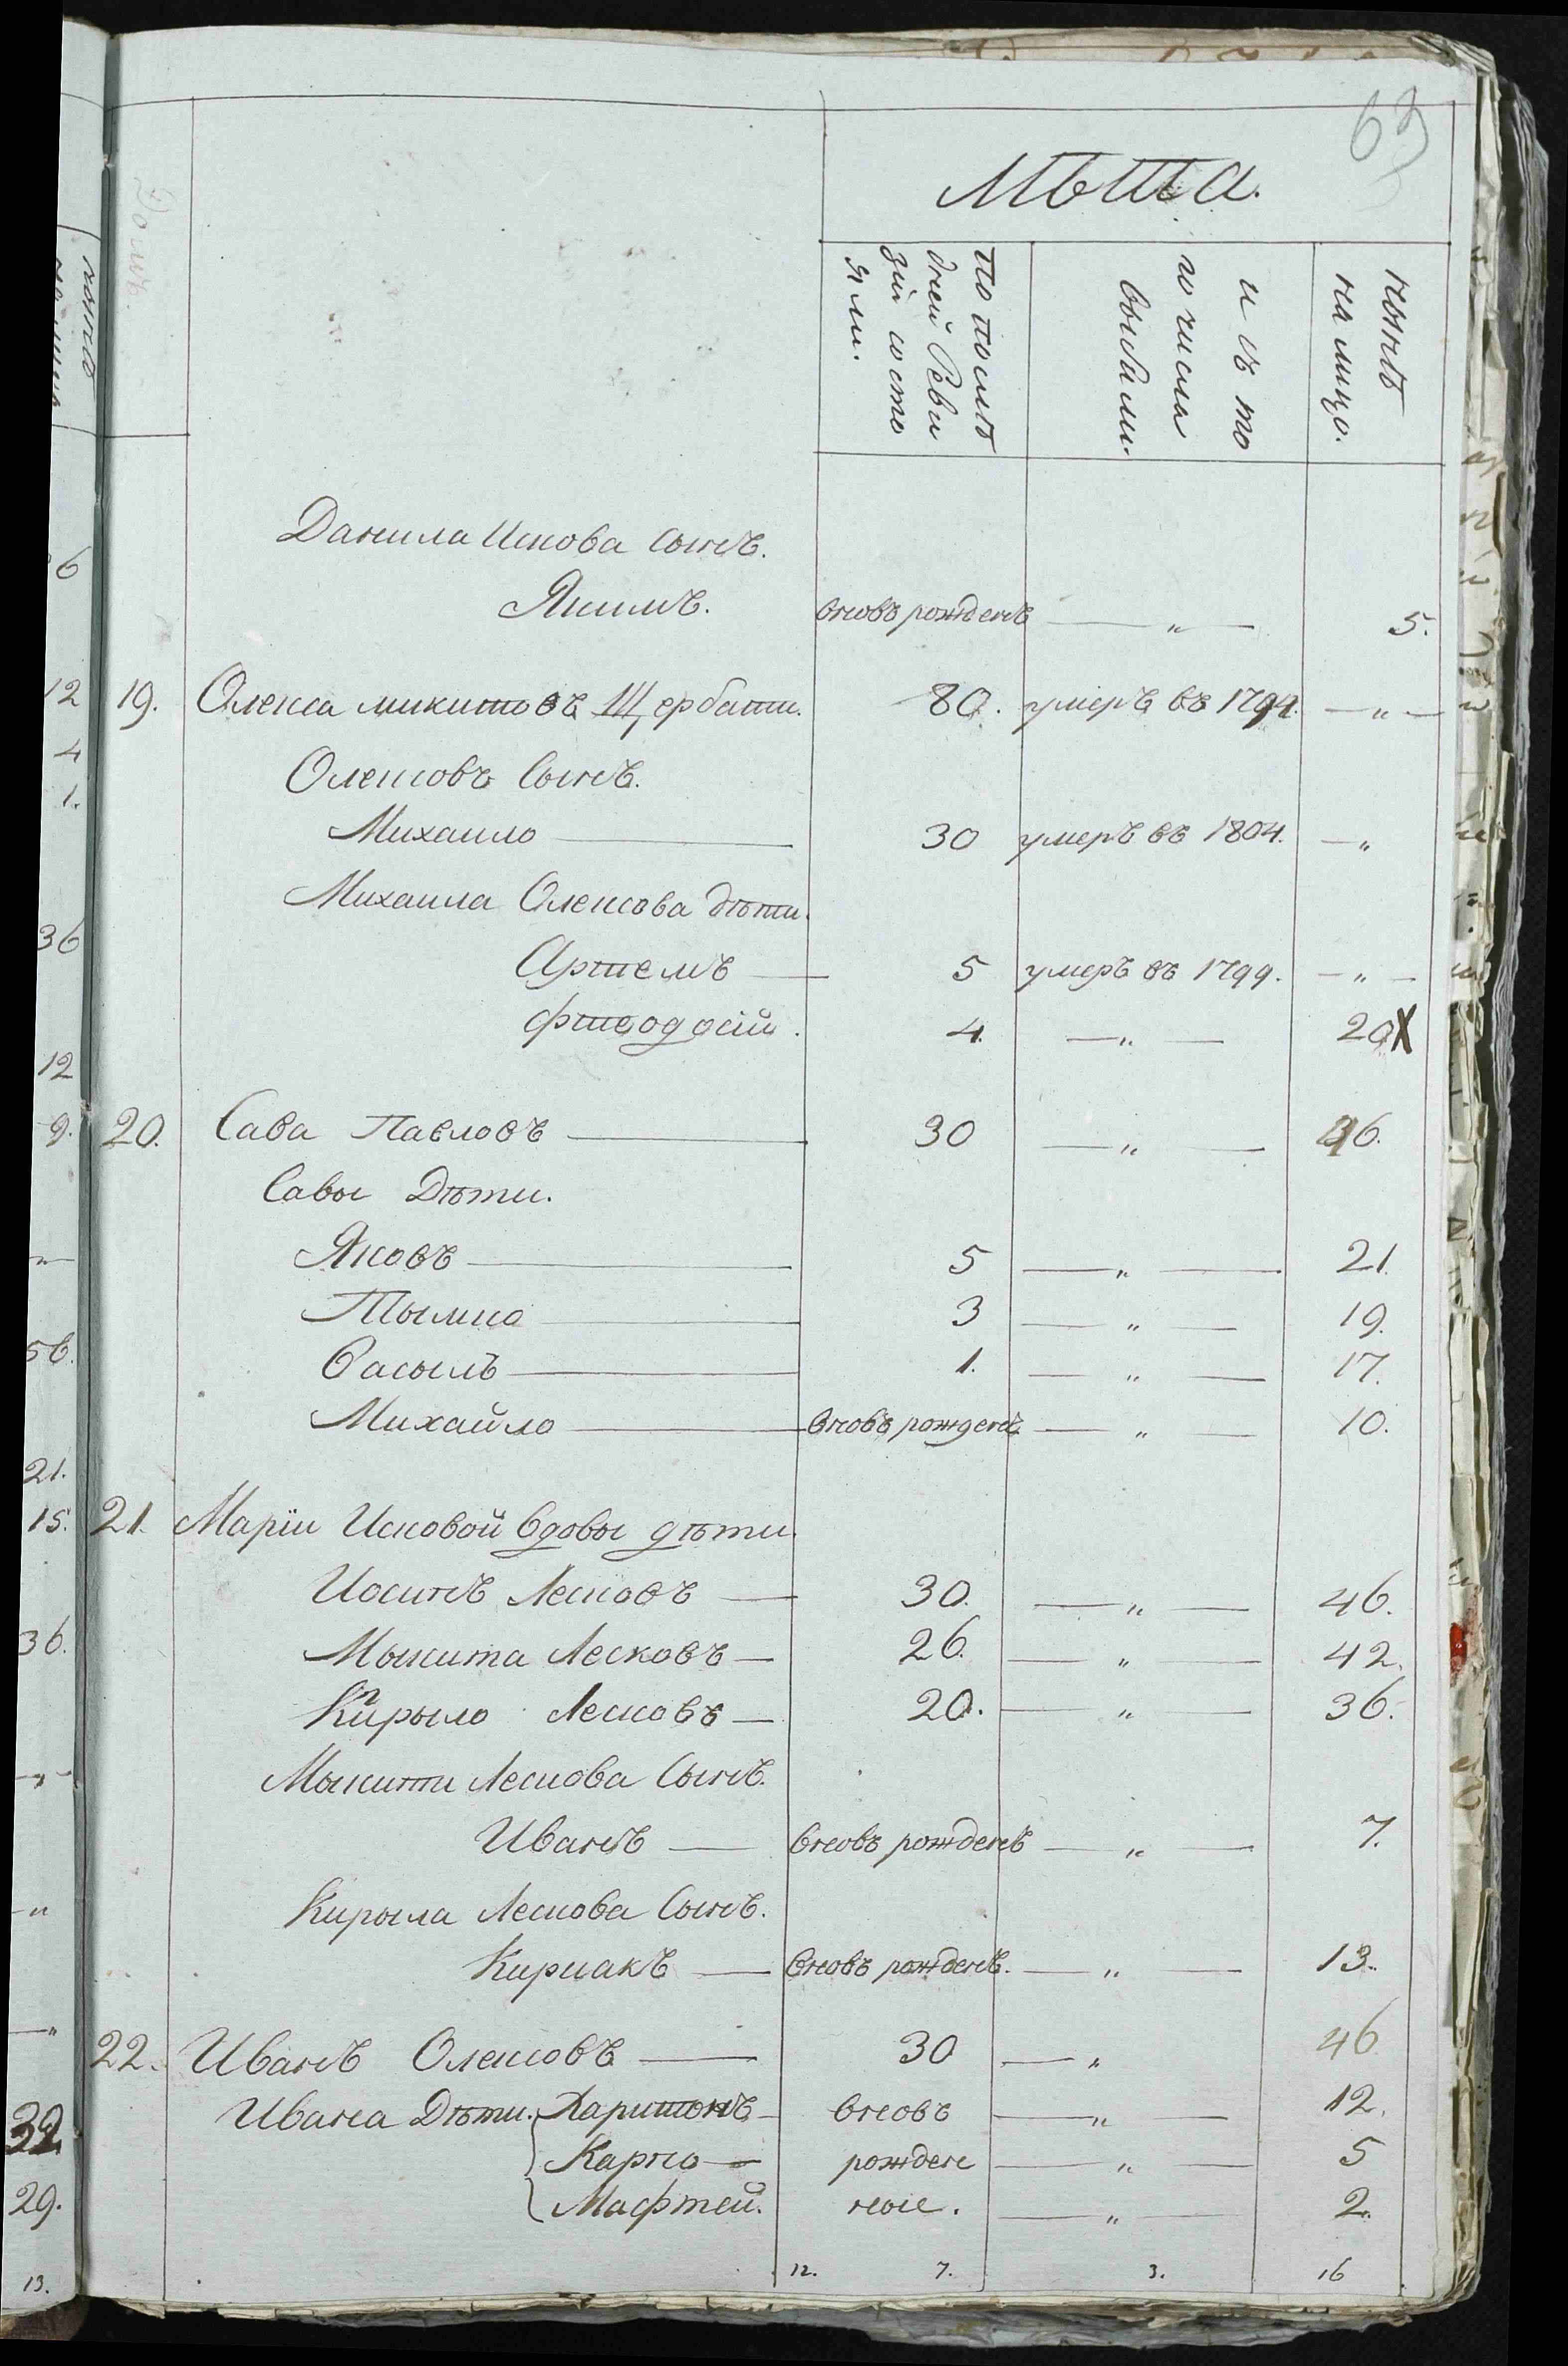 63
Лѣта.
По послѣ
дней Реви
зіи состо
яли.
изъ то
го числа
выбыли.
нынѣ
на лицо.
Данила Искова Сынъ.
Якимъ. вновь рожденъ — " — 5.
19. Олекса микитовъ Щербати. 80. умеръ въ 1794. — " —
Олексовъ Сынъ.
Михаило — 30 умеръ въ 1804. — "
Михаила Олексова дѣти.
Артемъ — 5 умеръ въ 1799. — " —
Фтеодосій. 4. — " — 20
20. Сава Павловъ — 30 — " — 46.
Савы Дѣти.
Яковъ — 5 — " — 21.
Тымко — 3 — " — 19.
Василь — 1. — " — 17.
Михайло — вновь рожденъ — " — 10.
21. Маріи Исковой вдовы дѣти
Иосипъ Лесковъ — 30. — " — 46.
Мыкита Лесковъ — 26. — " — 42.
Кирыло Лесковъ — 20. — " — 36.
Мыкити Лескова Сынъ.
Иванъ — вновь рожденъ — " — 7.
Кирыла Лескова Сынъ.
Кириакъ — вновь рожденъ. — " — 13.
22. Иванъ Олексовъ — 30 — " 46
Ивана Дѣти. Харитонъ — вновь — " — 12.
Карпо — рожден — " — 5
Мафтей. ные. — " — 2.
12. 7. 3. 16